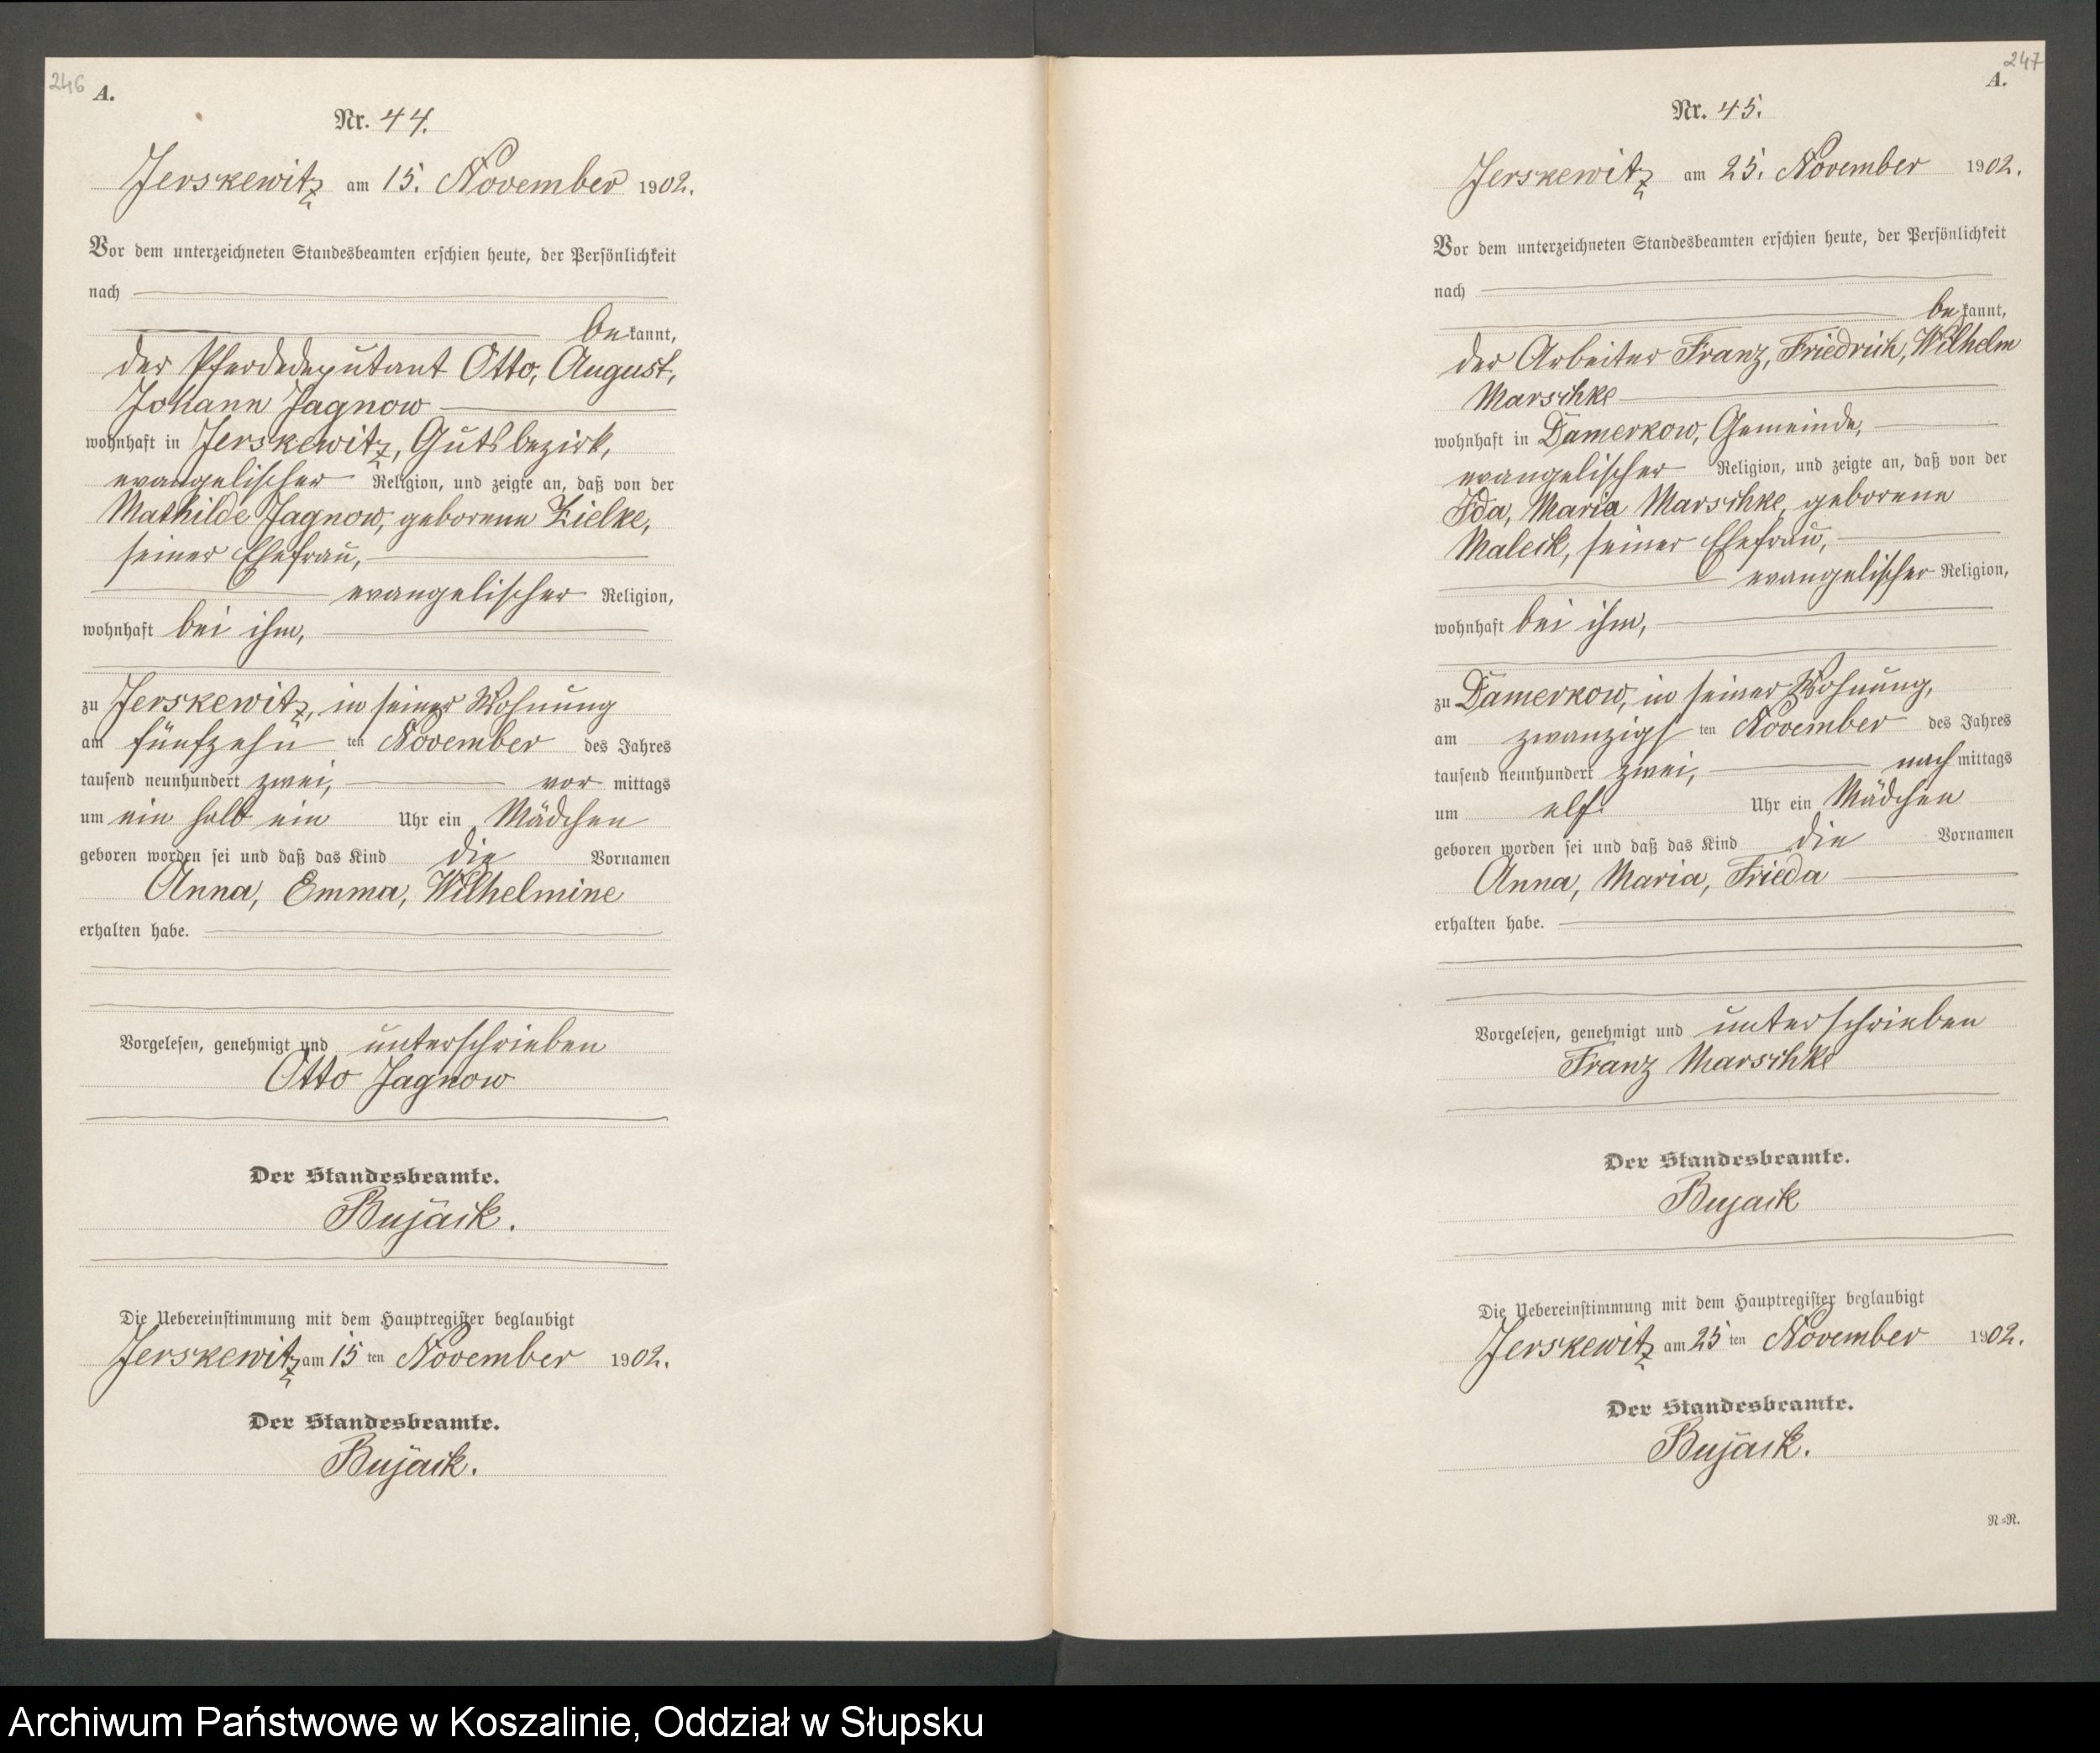 246
A.
Nr. 44.
Jerskewitz am 15. November 1902.
Vor dem unterzeichneten Standesbeamten erschien heute, der Persönlichkeit
nach
bekannt,
der Pferdedeputant Otto, August,
Johann Jagnow
wohnhaft in Jerskewitz, Gutsbezirk,
evangelischer Religion, und zeigte an, daß von der
Mathilde Jagnow, geborene Zielke,
seiner Ehefrau,
evangelischer Religion,
wohnhaft bei ihm,
zu Jerskewitz, in seiner Wohnung
am fünfzehn ten November des Jahres
tausend neunhundert zwei, vor mittags
um ein halb ein Uhr ein Mädchen
geboren worden sei und daß das Kind die Vornamen
Anna, Emma, Wilhelmine
erhalten habe.
Vorgelesen, genehmigt und unterschrieben
Otto Jagnow
Der Standesbeamte.
Bujack.
Die Uebereinstimmung mit dem Hauptregister beglaubigt
Jerskewitz am 15 ten November 1902.
Der Standesbeamte.
Bujack.
247
A.
Nr. 45.
Jerskewitz am 25. November 1902.
Vor dem unterzeichneten Standesbeamten erschien heute, der Persönlichkeit
nach
bekannt,
der Arbeiter Franz, Friedrich, Wilhelm
Marschke
wohnhaft in Damerkow, Gemeinde,
evangelischer Religion, und zeigte an, daß von der
Ida, Maria Marschke, geborene
Maleck, seiner Ehefrau,
evangelischer Religion,
wohnhaft bei ihm,
zu Damerkow, in seiner Wohnung,
am zwanzigs ten November des Jahres
tausend neunhundert zwei, nach mittags
um elf Uhr ein Mädchen
geboren worden sei und daß das Kind die Vornamen
Anna, Maria, Frieda
erhalten habe.
Vorgelesen, genehmigt und unterschrieben
Franz Marschke
Der Standesbeamte.
Bujack
Die Uebereinstimmung mit dem Hauptregister beglaubigt
Jerskewitz am 25 ten November 1902.
Der Standesbeamte.
Bujack.
N=R.
Archiwum Państwowe w Koszalinie, Oddział w Słupsku